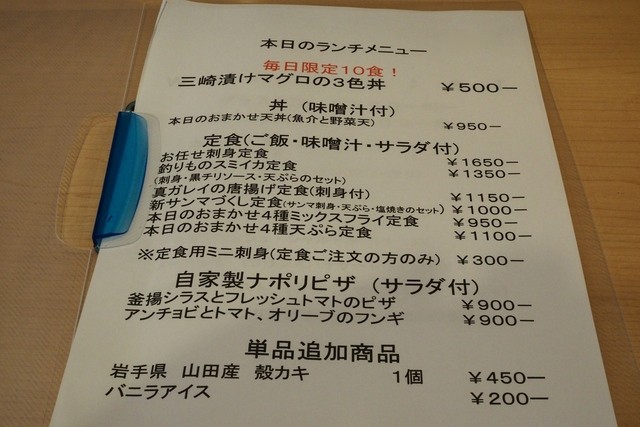 本日のランチメニュー
毎日限定10食！
三崎漬けマグロの3色丼 ￥500－
丼（味噌汁付）
本日のおまかせ天丼(魚介と野菜天) ￥950－
定食(ご飯・味噌汁・サラダ付）
お任せ刺身定食 ￥1650－
釣りものスミイカ定食 ￥1350－
(刺身・黒チリソース・天ぷらのセット)
真ガレイの唐揚げ定食(刺身付) ￥1150－
新サンマづくし定食(サンマ刺身・天ぷら・塩焼きのセット) ￥1000－
本日のおまかせ4種ミックスフライ定食 ￥950－
本日のおまかせ4種天ぷら定食 ￥1100－
※定食用ミニ刺身(定食ご注文の方のみ) ￥300－
自家製ナポリピザ （サラダ付）
釜揚シラスとフレッシュトマトのピザ ￥900－
アンチョビとトマト、オリーブのフンギ ￥900－
単品追加商品
岩手県 山田産 殻カキ 1個 ￥450－
バニラアイス ￥200－